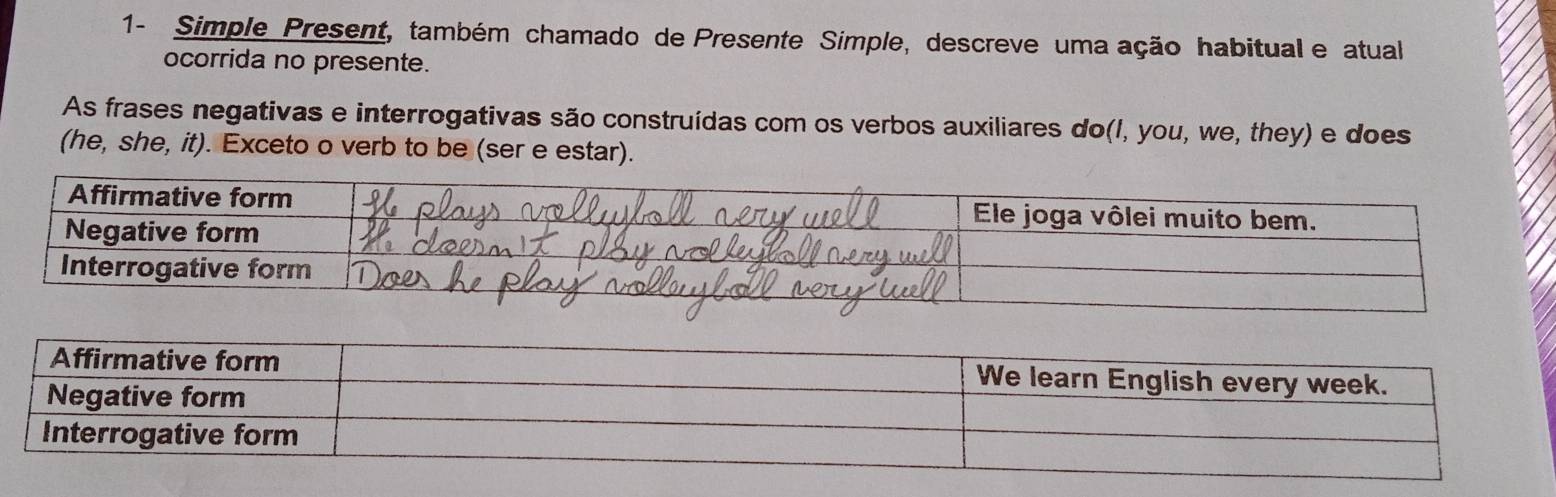 1- Simple Present, também chamado de Presente Simple, descreve uma ação habitual e atual
ocorrida no presente.
As frases negativas e interrogativas são construídas com os verbos auxiliares do(I, you, we, they) e does
(he, she, it). Exceto o verb to be (ser e estar).
Affirmative form He plays volleyball very well Ele joga vôlei muito bem.
Negative form He doesn't play volleyball very well
Interrogative form Does he play volleyball very well
Affirmative form We learn English every week.
Negative form
Interrogative form